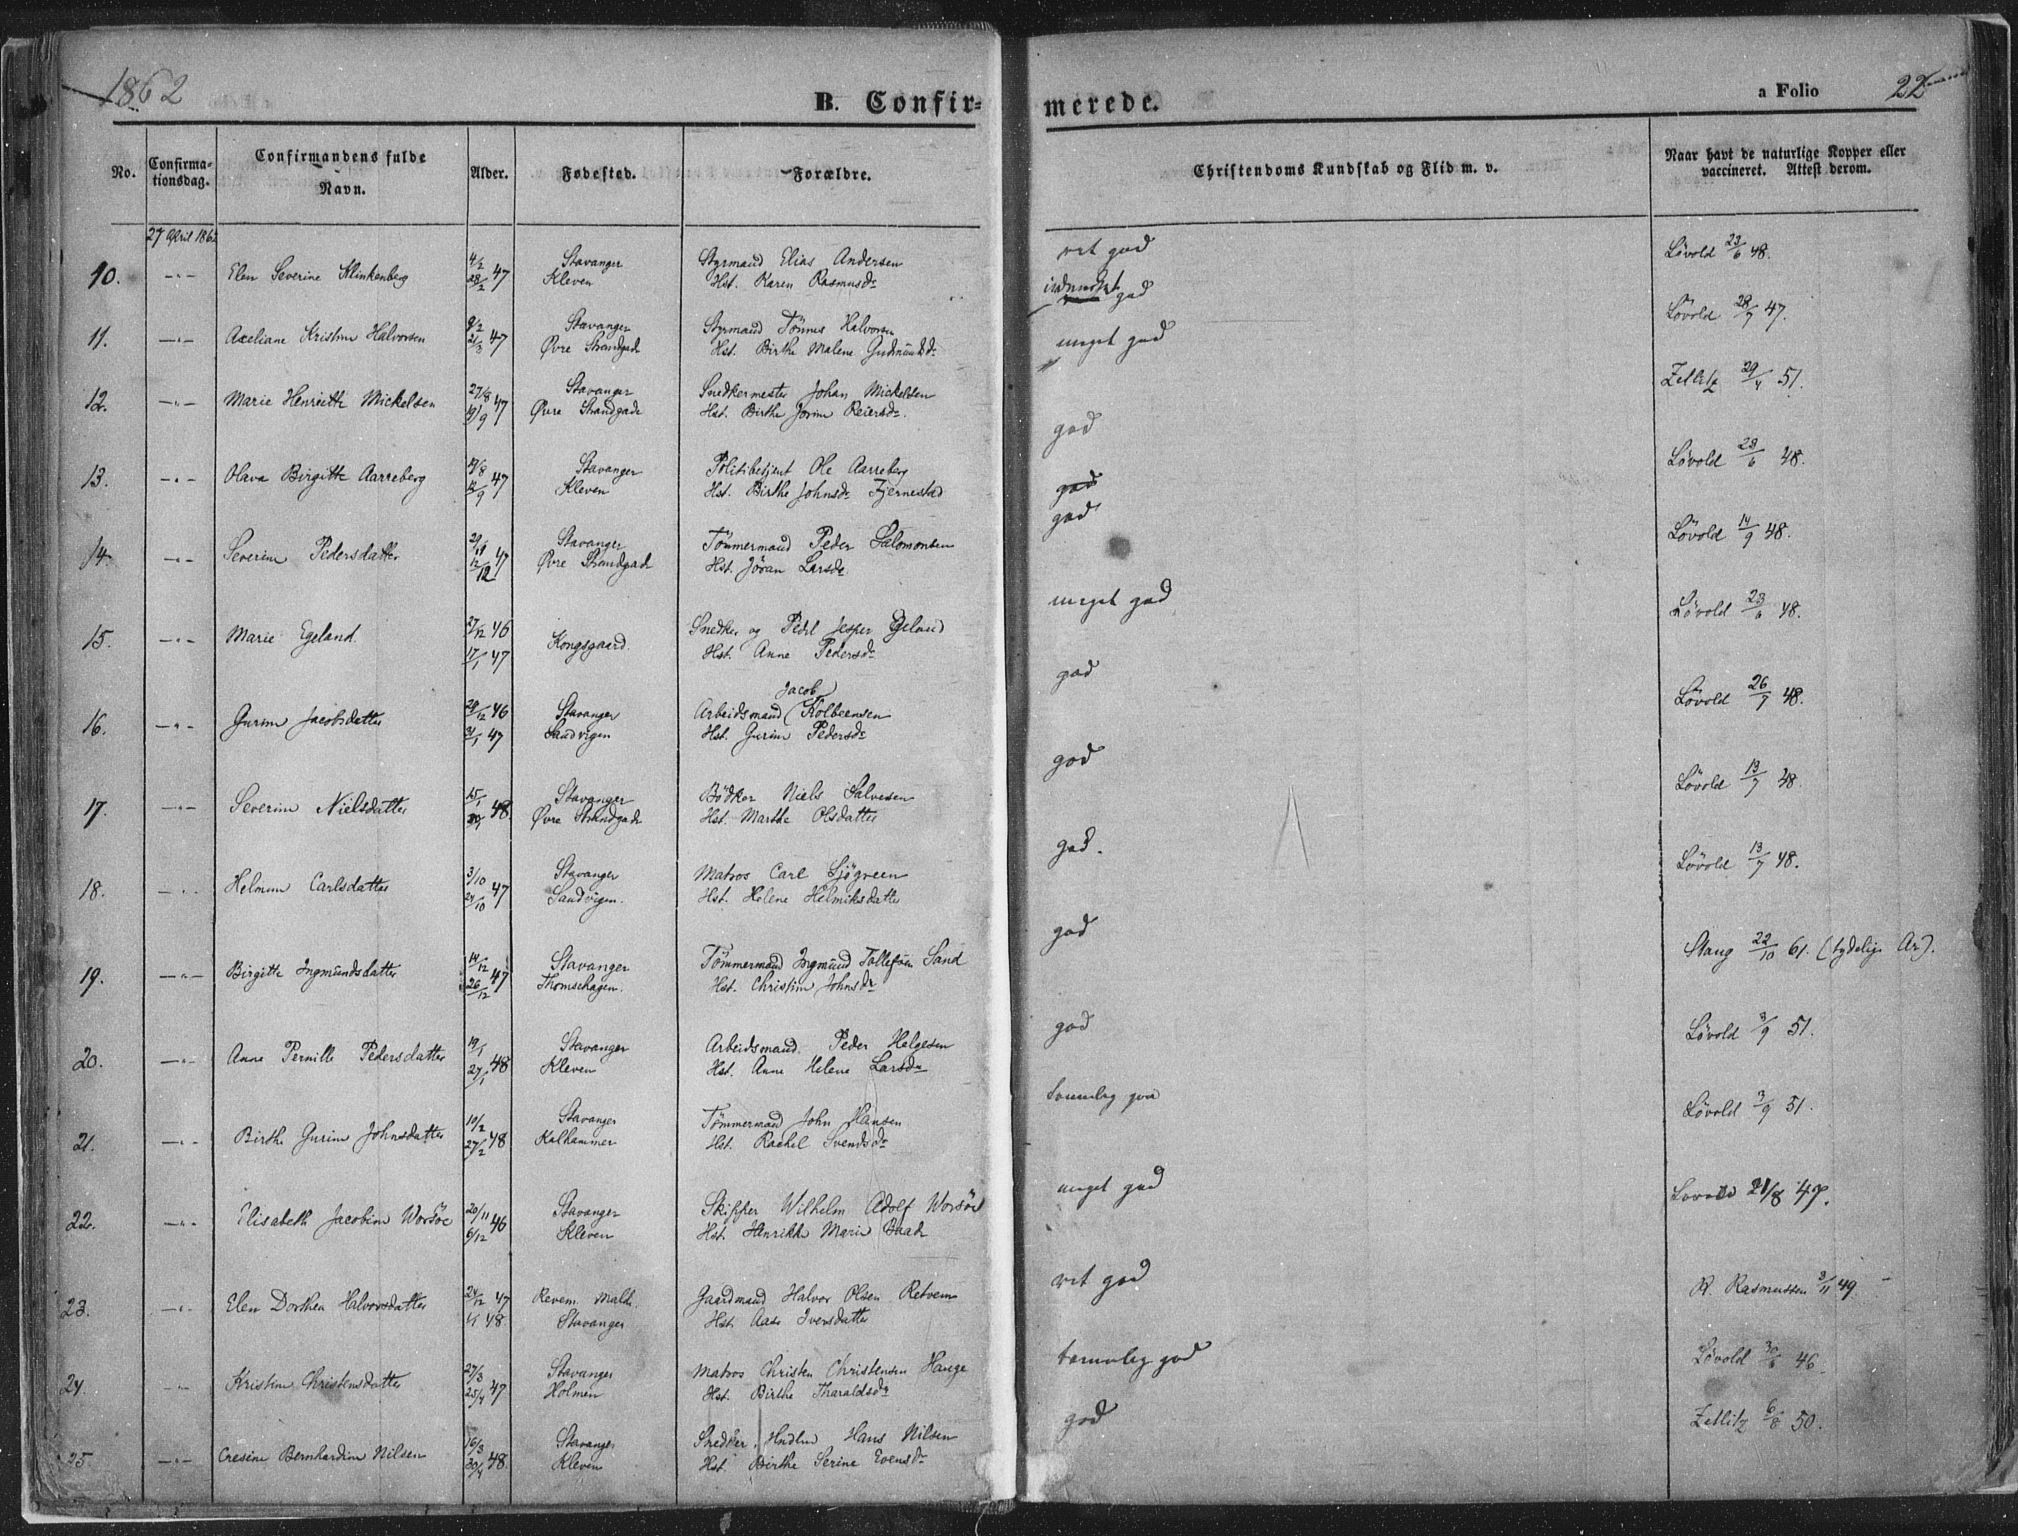 1862
B. Confir-
merede.
a Folio 22
No.
Confirma-
tionsdag.
Confirmandens fulde
Navn.
Alder.
Fødested.
Forældre.
Christendoms Kundskab og Flid m. v.
Naar havt de naturlige Kopper eller
vaccineret. Attest derom.
27 April 1862
10. -"- Elen Severine Klinkenberg 4/2 28/2 47 Stavanger Kleven
Styrmand Elias Andersen
Hst. Karen Rasmusdr
ret god
Løvold 23/6 48.
11. -"- Axeliane Kristine Halvorsen 9/2 21/3 47 Stavanger Øvre Strandgade
Styrmand Tønnes Halvorsen
Hst. Birthe Malene Gudmundsdr
god
Løvold 28/7 47.
12. -"- Marie Henriette Mickelsen 27/8 19/9 47 Stavanger Øvre Strandgade
Snedkermester Johan Mickelsen
Hst. Birthe Jorine Reiersdr.
meget god
Zetlitz 29/4 51.
13. -"- Olava Birgitte Aarreberg 12/9 47 Stavanger Kleven
Politibetjent Ole Aarreberg
Hst. Birthe Johnsdr Fjernestad
god
Løvold 23/6 48.
14. -"- Severine Pedersdatter 29/11 12/12 47 Stavanger Øvre Strandgade
Tømmermand Peder Salomonsen
Hst. Jøran Larsdr.
god
god
Løvold 14/9 48.
15. -"- Marie Egeland 27/12 46 17/1 47 Kongsgaard.
Snedker og Pedel Jesper Egeland
Hst. Anne Pedersdr
meget god
Løvold 23/6 48.
16. -"- Gurine Jacobsdatter 29/12 46 31/1 47 Stavanger Sandvigen
Jacob
Arbeidsmand Kolbeensen
Hst. Gurine Pedersdr
god
Løvold 26/7 48.
17. -"- Severine Nielsdatter 15/1 30/1 48 Stavanger Øvre Strandgade
Bødker Niels Salvesen
Hst. Marthe Olsdatter
god
Løvold 13/7 48.
18. -"- Helmine Carlsdatter 3/10 24/10 47 Stavanger Sandvigen.
Matros Carl Sjøgreen
Hst. Helene Helmiksdatter
god.
Løvold 13/7 48.
19. -"- Birgitte Ingmundsdatter 14/12 26/12 47 Stavanger Thomsehagen.
Tømmermand Ingmund Tollefsen Sand
Hst. Christine Johnsdr
god
Stang 22/10 61. (tydelige Ar).
20. -"- Anne Pernille Pedersdatter 19/1 27/1 48 Stavanger Kleven
Arbeidsmand Peder Helgesen
Hst. Anne Helene Larsdr
god
Løvold 3/9 51.
21. -"- Birthe Gurine Johnsdatter 10/2 27/2 48 Stavanger Kalhammer
Tømmermand John Hansen
Hst. Rachel Svendsdr
temmelig god
Løvold 3/9 51.
22. -"- Elisabeth Jacobine Worsøe 20/11 6/12 46 Stavanger Kleven
Skipper Wilhelm Adolf Worsøe
Hst. Henrikke Marie Baade
meget god
Løvold 21/8 47.
23. -"- Elen Dorthea Halvorsdatter 24/12 47 1/1 48 Revem Malde Stavanger
Gaardmand Halvor Olsen Retvem
Hst. Aase Iversdatter
ret god
R. Rasmussen 3/11 49
24. -"- Kristine Christensdatter 27/3 25/4 47 Stavanger Holmen
Matros Christen Christensen Hauge
Hst. Birthe Tharaldsdr
temmelig god
Løvold 46.
25. -"- Cresine Bernhardine Nilsen 16/3 30/4 48. Stavanger Kleven
Snedker Hans Nilsen
Hst. Birthe Serine Evensdr
god
Zetlitz 6/8 50.